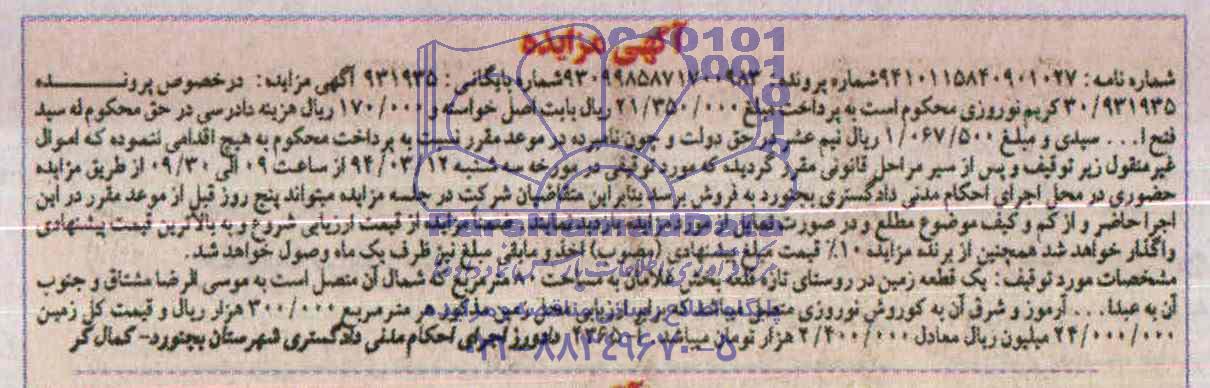 آگهی مزایده
شماره نامه: ۹۴۱۰۱۱۵۸۴۰۹۰۱۰۲۷ شماره پرونده: ۹۳۰۹۹۸۵۸۷۱۷۰۰۹۸۳ شماره بایگانی: ۹۳۱۹۳۵ آگهی مزایده: درخصوص پرونـــــده
۳۰/۹۳۱۹۳۵ کریم نوروزی محکوم است به پرداخت مبلغ ۲۱/۳۵۰/۰۰۰ ریال بابت اصل خواسته و ۱۷۰/۰۰۰ ریال هزینه دادرسی در حق محکوم له سید
فتح ا... سیدی و مبلغ ۱/۰۶۷/۵۰۰ ریال نیم عشر در حق دولت و چون نامبرده در موعد مقرر نسبت به پرداخت محکوم به هیچ اقدامی ننموده که اموال
غیر منقول زیر توقیف و پس از سیر مراحل قانونی مقرر گردیده که مورد توقیفی در مورخه سه شنبه ۹۴/۰۳/۱۲ از ساعت ۰۹ الی ۰۹/۳۰ از طریق مزایده
حضوری در محل اجرای احکام مدنی دادگستری بجنورد به فروش برسد بنابراین متقاضیان شرکت در جلسه مزایده میتواند پنج روز قبل از موعد مقرر در این
اجرا حاضر و از کم و کیف موضوع مطلع و در صورت تمایل از مورد مزایده بازدید نمایند. ضمنا مزایده از قیمت ارزیابی شروع و به بالاترین قیمت پیشنهادی
واگذار خواهد شد همچنین از برنده مزایده ۱۰٪ قیمت مبلغ پیشنهادی (مصوب) اخذ و مابقی مبلغ نیز ظرف یک ماه وصول خواهد شد.
مشخصات مورد توقیف: یک قطعه زمین در روستای تازه قلعه بخش غلامان به مساحت ۸۰ متر مربع که شمال آن متصل است به موسی الرضا مشتاق و جنوب
آن به عبدا... آرموز و شرق آن به کوروش نوروزی متصل میباشد که برابر ارزیابی زمین مذکور هر متر مربع ۳۰۰/۰۰۰ هزار ریال و قیمت کل زمین
۲۴/۰۰۰/۰۰۰ میلیون ریال معادل ۲/۴۰۰/۰۰۰ هزار تومان میباشد. ۴۳۶۵ دادورز اجرای احکام مدنی دادگستری شهرستان بجنورد- کمال گر
۰۲۱-۸۸۳۴۹۶۷۰-۵